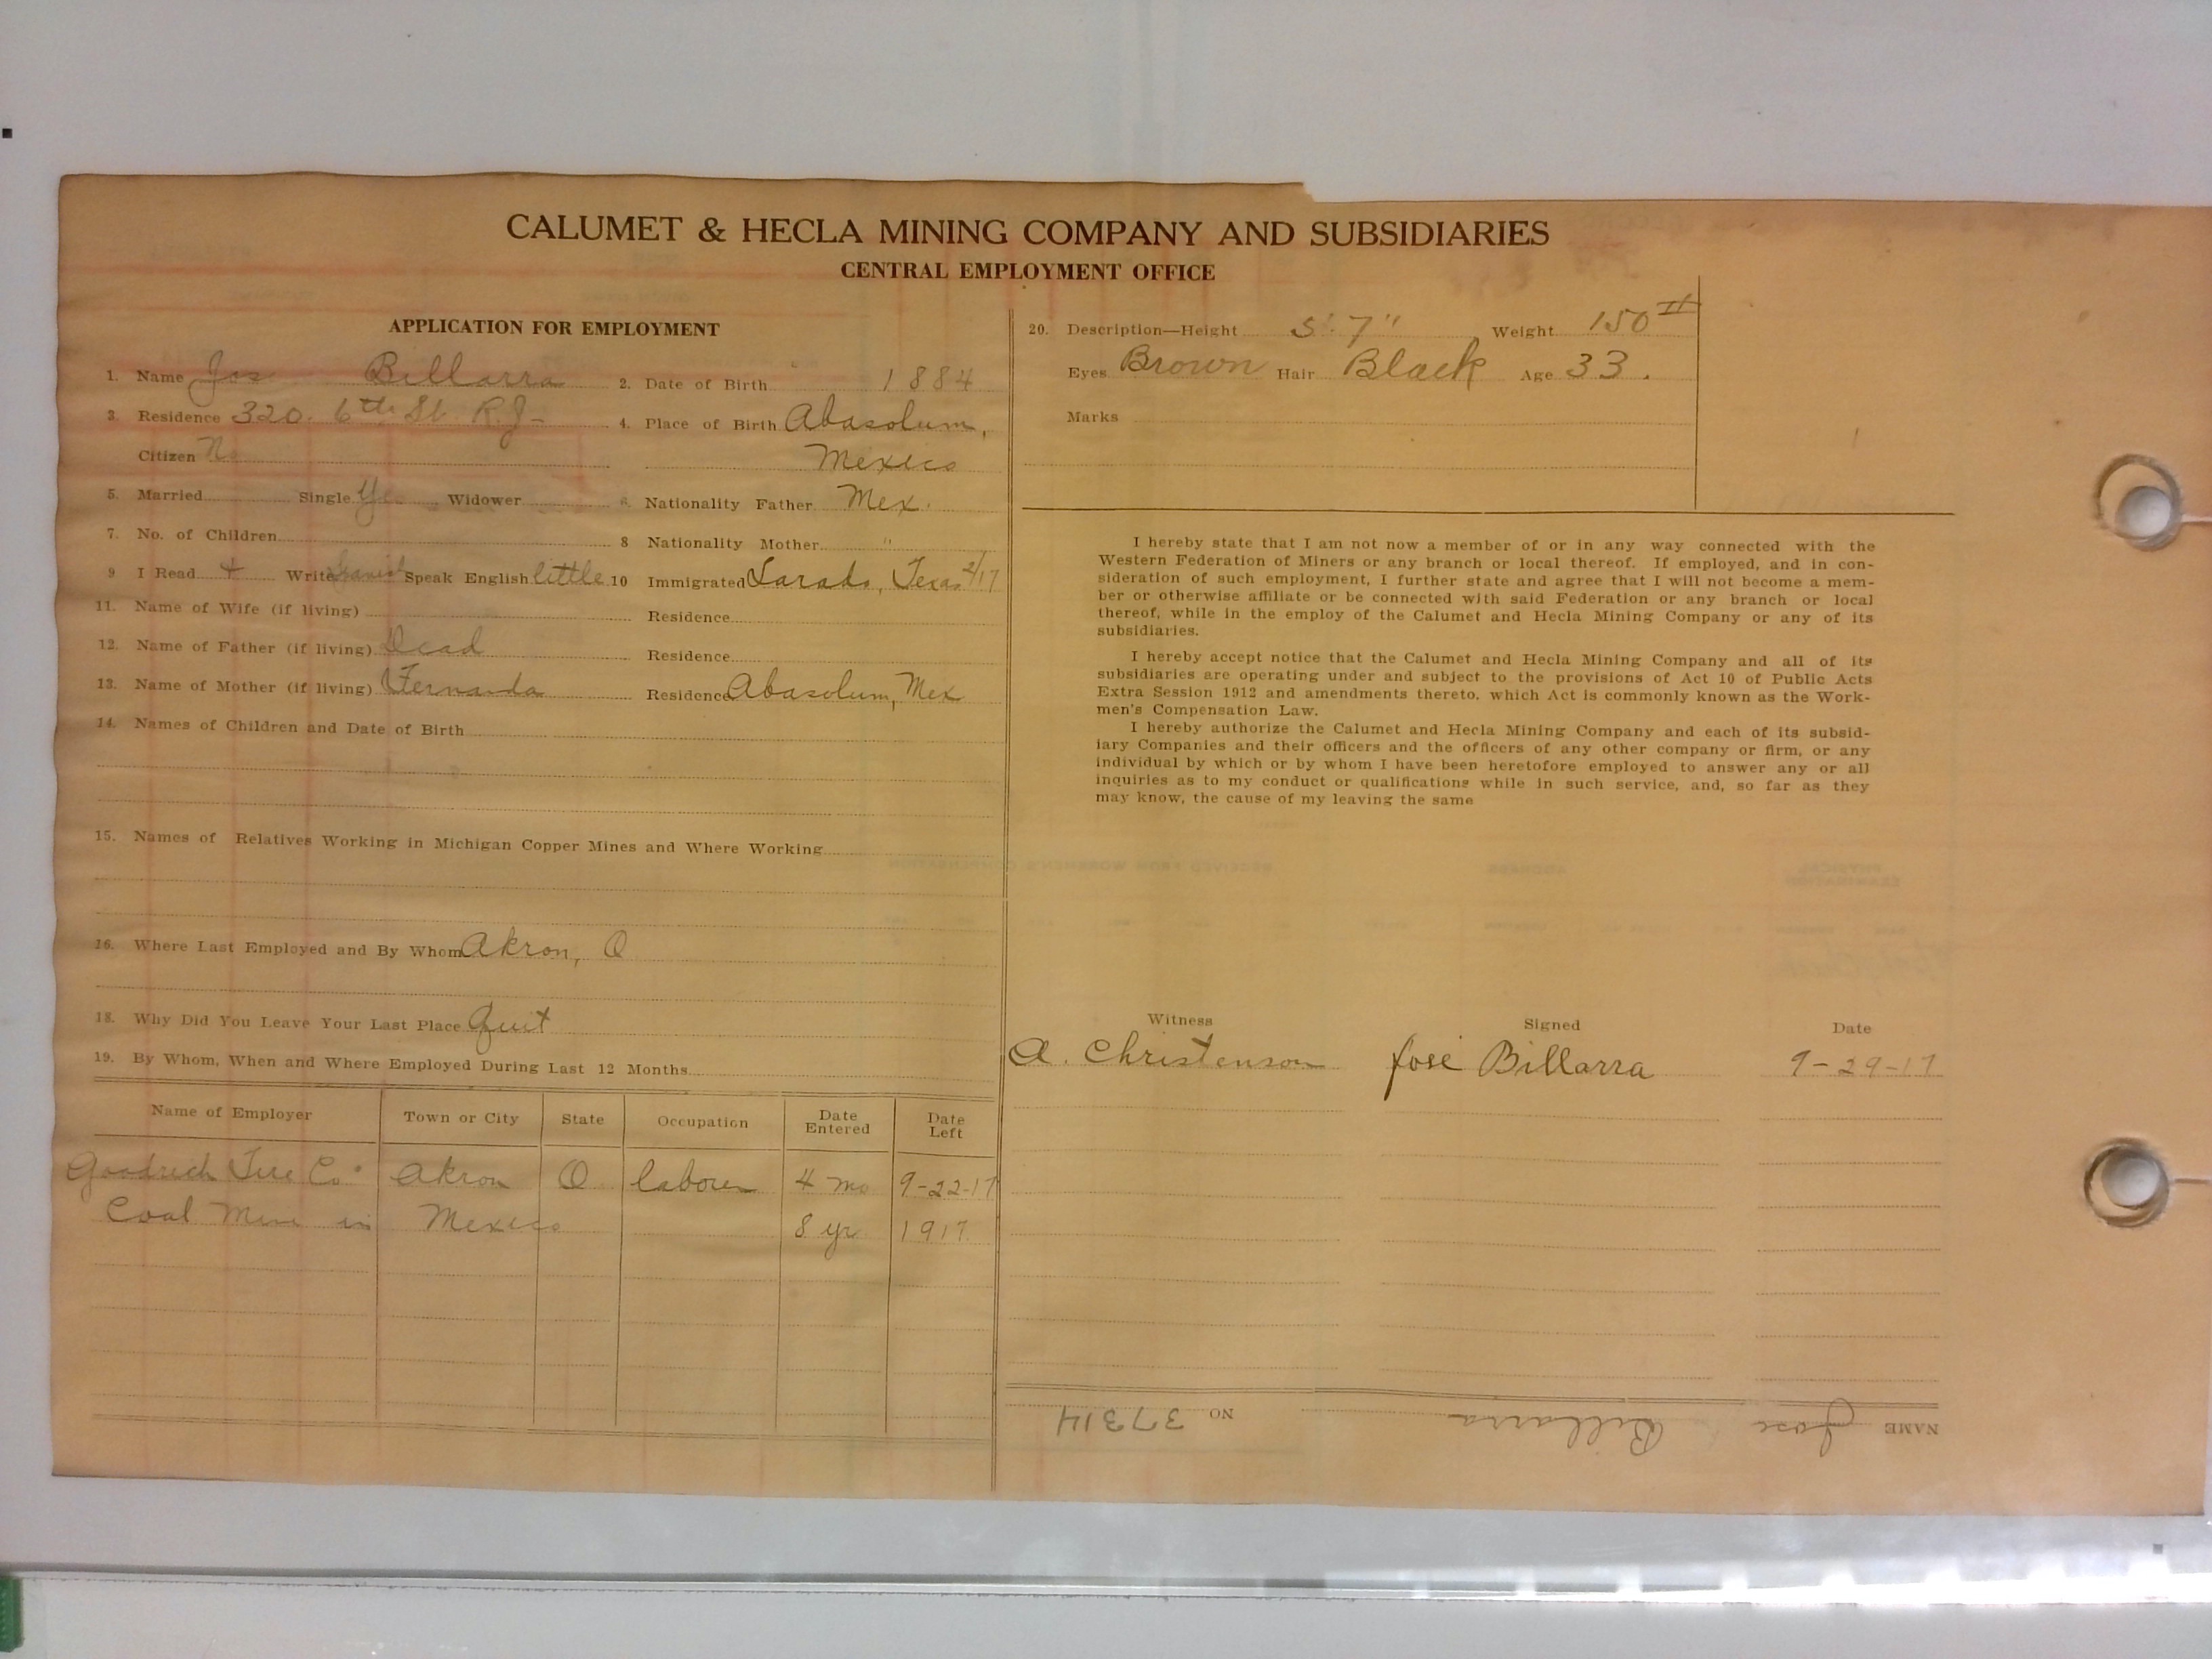 CALUMET & HECLA MINING COMPANY AND SUBSIDIARIES
CENTRAL EMPLOYMENT OFFICE
APPLICATION FOR EMPLOYMENT
1. Name Jos Billarra 2. Date of Birth 1884
3. Residence 320. 6th St. R.J- 4. Place of Birth Abasolum,
Citizen No Mexico
5. Married Single Yes Widower 6. Nationality Father Mex.
7. No. of Children 8 Nationality Mother "
9 I Read + Write Spanish Speak English little 10 Immigrated Larado, Texas 2/17
11. Name of Wife (if living) Residence
12. Name of Father (if living) Dead Residence
13. Name of Mother (if living) Fernanda Residence Abasolum, Mex
14. Names of Children and Date of Birth
15. Names of Relatives Working in Michigan Copper Mines and Where Working
16. Where Last Employed and By Whom Akron, O
18. Why Did You Leave Your Last Place Quit
19. By Whom, When and Where Employed During Last 12 Months
Name of Employer Town or City State Occupation Date Entered Date Left
Goodrich Tire Co. Akron O laborer 4 mo 9-22-17
Coal Mine in Mexico 8 yr 1917
20. Description—Height 5' 7" Weight 150#
Eyes Brown Hair Black Age 33.
Marks
I hereby state that I am not now a member of or in any way connected with the
Western Federation of Miners or any branch or local thereof. If employed, and in con-
sideration of such employment, I further state and agree that I will not become a mem-
ber or otherwise affiliate or be connected with said Federation or any branch or local
thereof, while in the employ of the Calumet and Hecla Mining Company or any of its
subsidiaries.
I hereby accept notice that the Calumet and Hecla Mining Company and all of its
subsidiaries are operating under and subject to the provisions of Act 10 of Public Acts
Extra Session 1912 and amendments thereto, which Act is commonly known as the Work-
men's Compensation Law.
I hereby authorize the Calumet and Hecla Mining Company and each of its subsid-
iary Companies and their officers and the officers of any other company or firm, or any
individual by which or by whom I have been heretofore employed to answer any or all
inquiries as to my conduct or qualifications while in such service, and, so far as they
may know, the cause of my leaving the same
Witness Signed Date
A. Christenson José Billarra 9-29-17
NAME Jose Billarra NO 37314